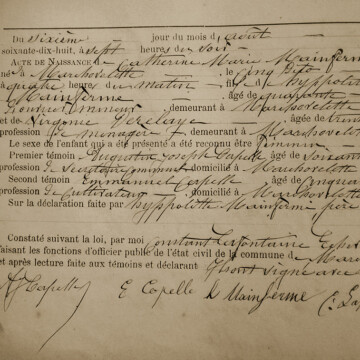 Du sixième jour du mois d'août
soixante-dix-huit, à sept heures du soir
ACTE DE NAISSANCE de Catherine Marie Mainferme
né à Marchovelette, le cinq
à quatre heures du matin de Hyppolite
Mainferme, âgé de quarante
demeurant à Marchovelette
et de Virginie, âgé de
profession de ménagère, demeurant à Marchovelette
Le sexe de l'enfant qui a été présenté a été reconnu être féminin
Premier témoin Augustin Joseph Capelle, âgé de soixante
profession de, domicilié à Marchovelette
Second témoin Emmanuel Capelle, âgé de
profession de cultivateur, domicilié à Marchovelette
Sur la déclaration faite par Hyppolite Mainferme père
Constaté suivant la loi, par moi Constant Lafontaine
faisant les fonctions d'officier public de l'état civil de la commune de
et après lecture faite aux témoins et déclarant
Capelle E Capelle h Mainferme